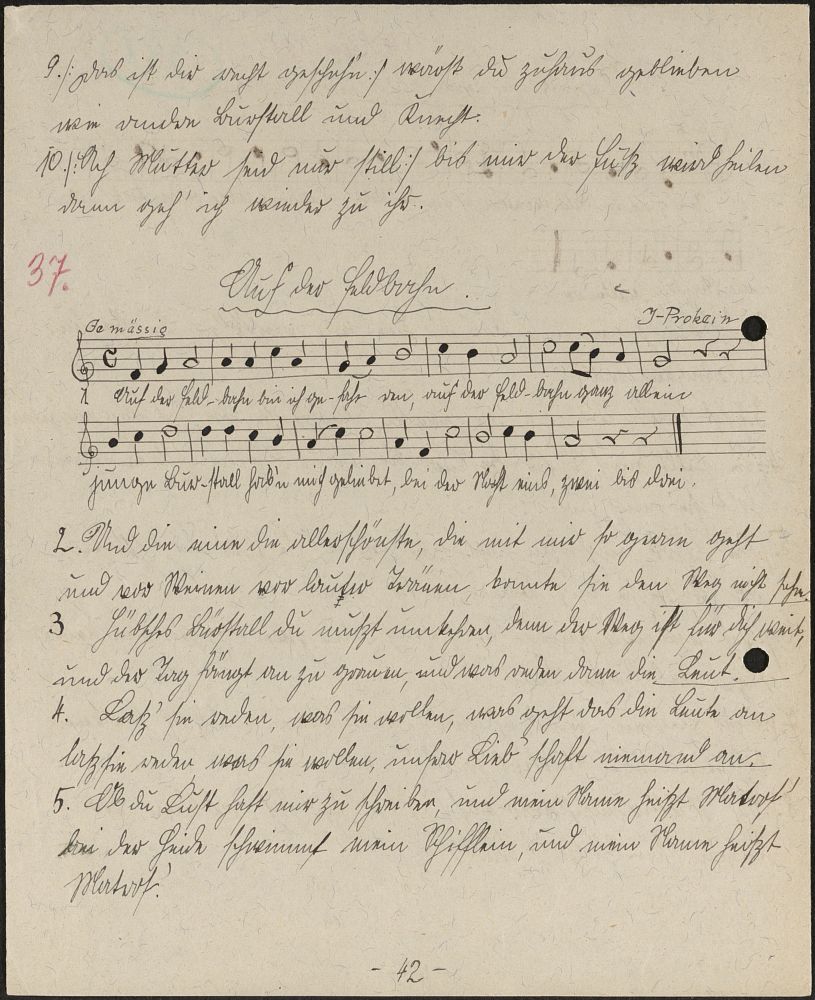 9. /: Das ist dir recht gescheh'n :/ wärst du zuhaus geblieben
wie andre Burstall und Knecht.
10. /: Ach Mutter seid nur still :/ bis mir der Fuß wird heilen
dann geh' ich wieder zu ihr.
37.
Auf der Feldbahn.
Ge mässig
J-Prokein
1 Auf der Feld-bahn bin ich ge-fahr ren, auf der Feld-bahn ganz allein
junge Bur-stall hab'n mich geliebet, bei der Nacht eins, zwei bis drei.
2. Und die eine die allerschönste, die mit mir so gern geht
und vor Weinen vor lauter Tränen, konnte sie den Weg nicht sehn.
3 Hübsches Bürstall du mußt umkehren, denn der Weg ist für dich weit,
und der Tag fängt an zu grauen, und was reden dann die Leut.
4. Laß' sie reden, was sie wollen, was geht das die Leute an
laß sie reden was sie wollen, unsere Lieb'schaft niemand an.
5. Ob du Lust hast mir zu schreiben, und mein Name heißt Matros'
bei der Heide schwimmt mein Schifflein, und mein Name heißt
Matros'.
- 42 -